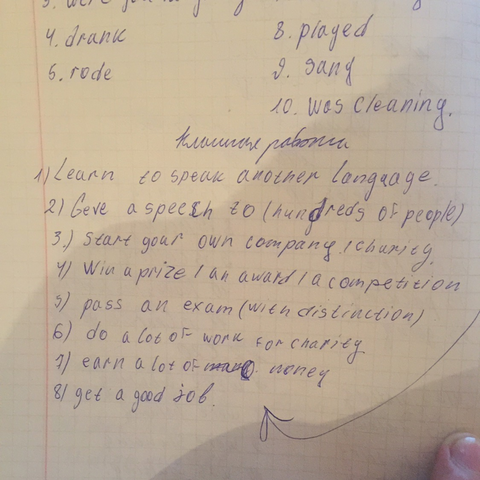 4. drank
5. rode
8. played
9. sang
10. was cleaning.
Классная работа
1) Learn to speak another language.
2) Geve a speech to (hundreds of people)
3.) Start your own company / charity
4) Win a prize / an award / a competition
5) pass an exam (with distinction)
6) do a lot of work for charity
7) earn a lot of money
8) get a good job.